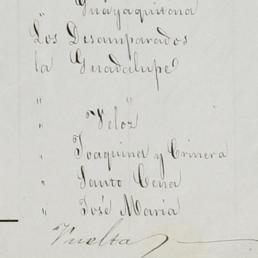 Guayaquilena
Los Desamparados
la Guadalupe
" "
" Veloz
" Joaquina y Crinera
" Santo Cena
" José María
Vuelta